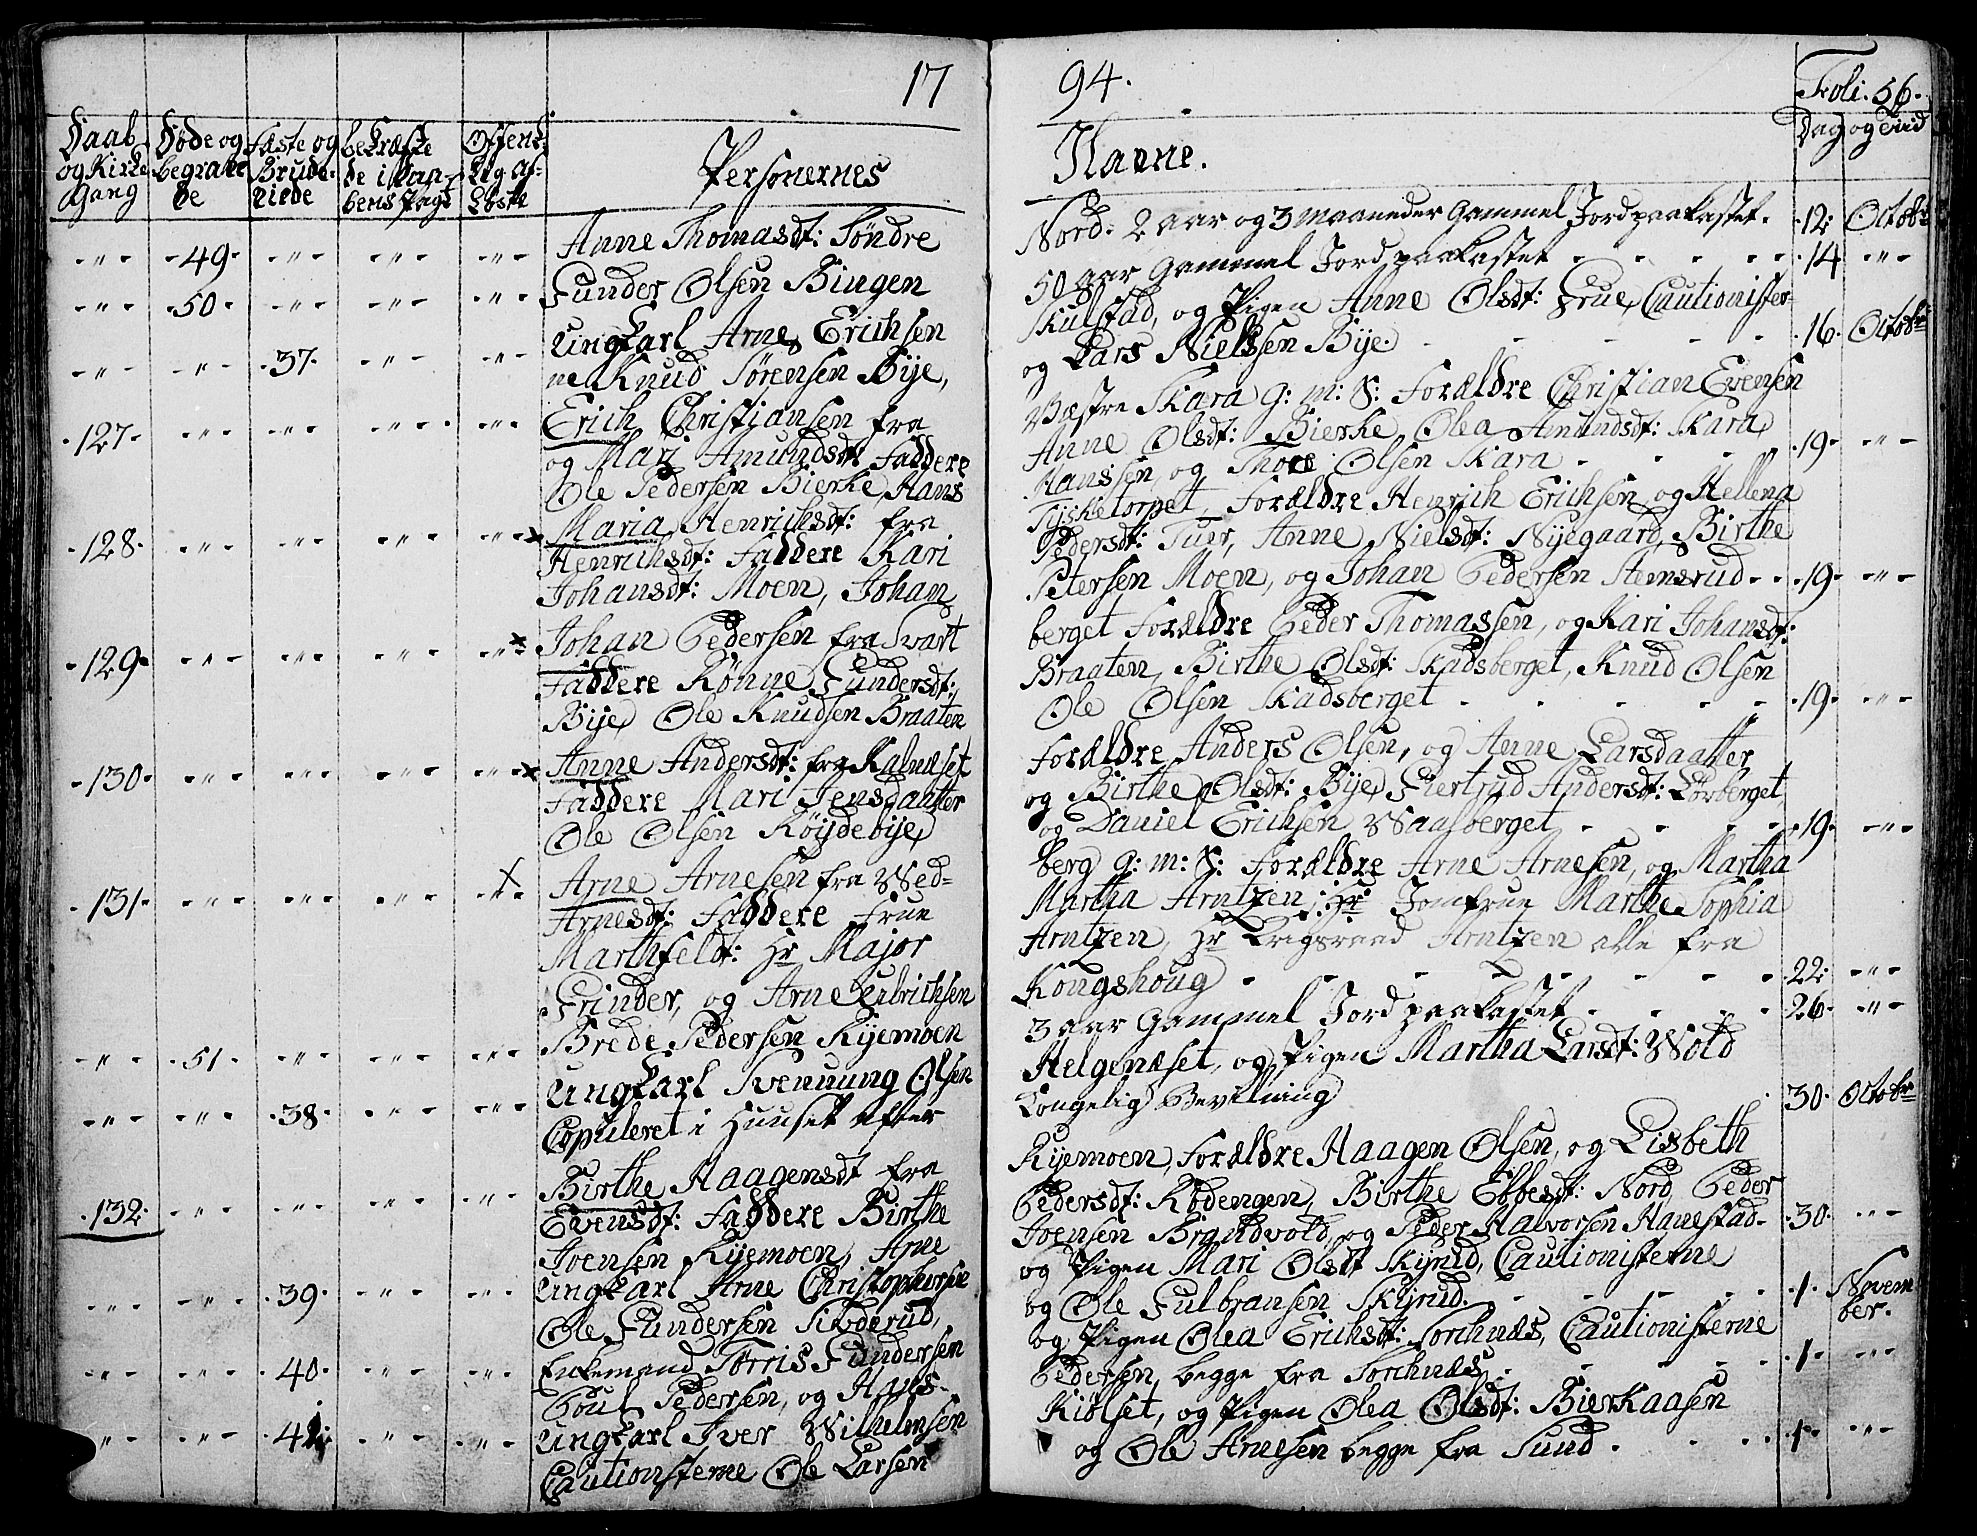 17
94.
Foli. 56.
Daab og Kirke Gang
Døde og begravede
Fæste og Brude viede
bekræftede i Daabens Pagt
Offentlig afløste
Personernes
Navne.
Dag og Tiid
- " - -49- - " - - " - - " - Anne Thomasdt: Søndre
- " - -50- - " - - " - - " - Gunder Olsen Bingen
Ungkarl Arne Erichsen
- " - - " - -37- - " - - " - ne Knud Sørensen Bije,
-127- - " - - " - - " - - " - Erich Christiansen fra
og Mari Amundsdt: Faddere
Ole Pedersen Bierke, Hans
-128- - " - - " - - " - - " - x Maria Henrichsdt: fra
Henrichsdt: Faddere Kari
Johansdt: Moen, Johan
-129- - " - - " - - " - - " - x Johan Pedersen fra Svart
Faddere Rønne Gundersdt:
Bije, Ole Knudsen Braaten
-130- - " - - " - - " - - " - x Anne Andersdt: fra Kalnæset
Faddere Mari Jensdaatter
Ole Olsen Røijdebije,
-131- - " - - " - - " - - " - x Arne Arnesen fra Wed-
Arnesdt: Faddere Frue
Marthfeldt: Hr Major
Grinder, og Arne Ulrichsen
- " - -51- - " - - " - - " - Brede Pedersen Rijemoen
Ungkarl Svenuung Olsen
- " - - " - -38- - " - - " - Copuleret i Huuset efter
Birthe Haagensdt fra
-132- - " - - " - - " - - " - Evensdt: Faddere Birthe
Joensen Rijemoen, Arne
- " - - " - -39- - " - - " - Ungkarl Arne Christophersen
Ole Gundersen Sibderud,
- " - - " - -40- - " - - " - Enkemand Torris Gundersen
Poul Pedersen, og Hans
- " - - " - -41- - " - - " - Ungkarl Iver Wilhelmsen
Cautionisterne Ole Larsen
Nord. 2 aar og 3 Maaneder Gammel Jord paakastet. -12- Octobr
50 aar Gammel Jord paakastet - - - - -14 - " -
Kulstad, og Pigen Anne Olsdt: Grue, Cautionister-
og Lars Nielssen Bije. - - - - -16- Octobr
Væstre Skara g: m: S: Forældre Christian Evensen
Anne Olsdt: Bierke, Olea Amundsdt: Skara,
Hanssen, og Thore Olsen Skara - - - - -19- - " -
Tijsketorpet, Forældre Henrich Erichsen, og Hellena
Pedersdt: Tuer, Anne Nielsdt: Nijegaard, Birthe
Petersen Moen, og Johan Pedersen Stemsrud - - -19- - " -
berget Forældre Peder Thomassen, og Kari Johansdt:
Braaten, Birthe Olsdt: Skadsberget, Knud Olsen
Ole Olsen Skadsberget - - - - -19- - " -
Forældre Anders Olsen, og Anne Larsdaatter
og Birthe Olsdt: Bije, Giertrud Andersdt: Lørberget,
og Daniel Erichsen Waalberget - - - - -19- - " -
berg g: m: S: Forældre Arne Arnesen, og Martha
Martha Arntzen, Hr Jomfrue Marthe Sophia
Arntzen, Hr Krigsraad Arntzen alle fra
Kongshoug - - - - -22- - " -
3 aar Gammel Jord paakastet - - - - -26- - " -
Helgenæset, og Pigen Martha Larsdt: Wold
Kongelig Bevilning - 30- Octobr
Rijemoen, Forældre Haagen Olsen, og Lisbeth
Pedersdt: Rødengen, Birthe Ebbesdt: Nord, Peder
Joensen Brandvold, og Peder Halvorsen Hanestad - -30- - " -
og Pigen Mari Olsdt Skijrud, Cautionisterne
og Ole Gulbransen Skijrud. - - - - -1- November.
og Pigen Olea Erichsdt: Sorchnæs, Cautionisterne
Pedersen, begge fra Sorchnæs - - - - -1- - " -
Kiølset, og Pigen Olea Olsdt: Bierkaasen
og Ole Arnesen begge fra Sund - - - - -1- - " -